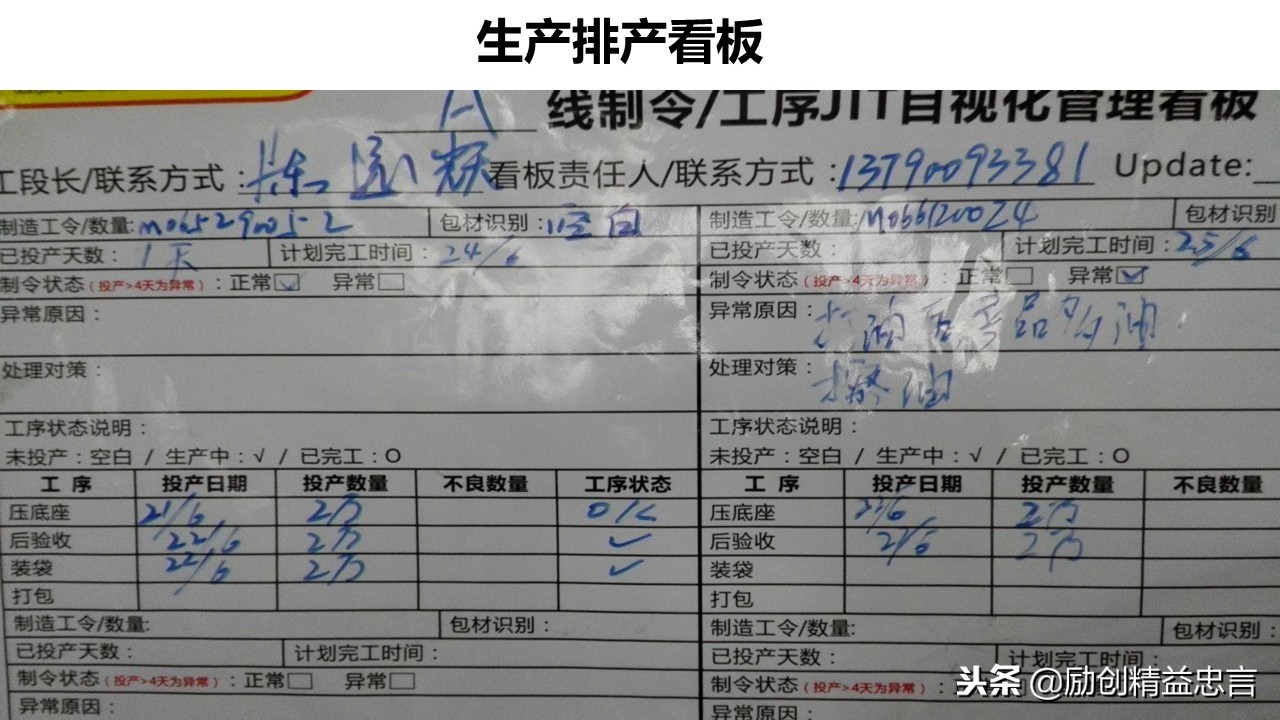 生产排产看板
A 线制令/工序JIT目视化管理看板
工段长/联系方式： 看板责任人/联系方式：13790093381 Update:
制造工令/数量:M065290052 包材识别：空白
已投产天数：1天 计划完工时间：24/6
制令状态（投产>4天为异常）：正常☑ 异常□
异常原因：
处理对策：
工序状态说明：
未投产：空白 / 生产中：√ / 已完工：O
工序 投产日期 投产数量 不良数量 工序状态
压底座 21/6 2万 OK
后验收 22/6 2万 ✓
装袋 22/6 2万 ✓
打包
制造工令/数量: 包材识别：
已投产天数： 计划完工时间：
制令状态（投产>4天为异常）：正常□ 异常□
异常原因：
制造工令/数量:M066120024 包材识别
已投产天数： 计划完工时间：25/6
制令状态（投产>4天为异常）：正常□ 异常☑
异常原因：打油 产品多油
处理对策：擦油
工序状态说明：
未投产：空白 / 生产中：√ / 已完工：O
工序 投产日期 投产数量 不良数量
压底座 2万
后验收 2万
装袋
打包
制造工令/数量: 包材识别：
已投产天数： 计划完工时间：
制令状态（投产>4天为异常）：
异常原因：
头条 @励创精益忠言